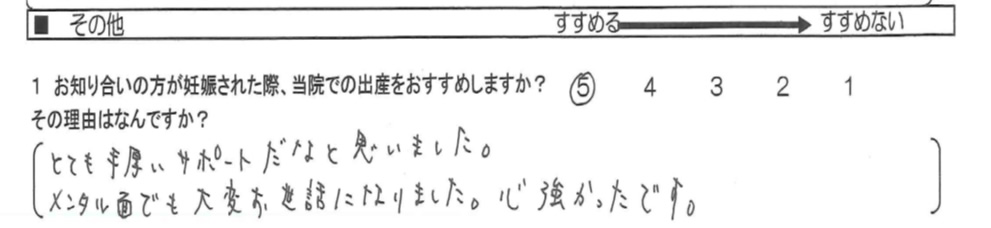 ■ その他 すすめる すすめない
1 お知り合いの方が妊娠された際、当院での出産をおすすめしますか? ⑤ 4 3 2 1
その理由はなんですか?
とても手厚いサポートだなと思いました。
メンタル面でも大変お世話になりました。心強かったです。